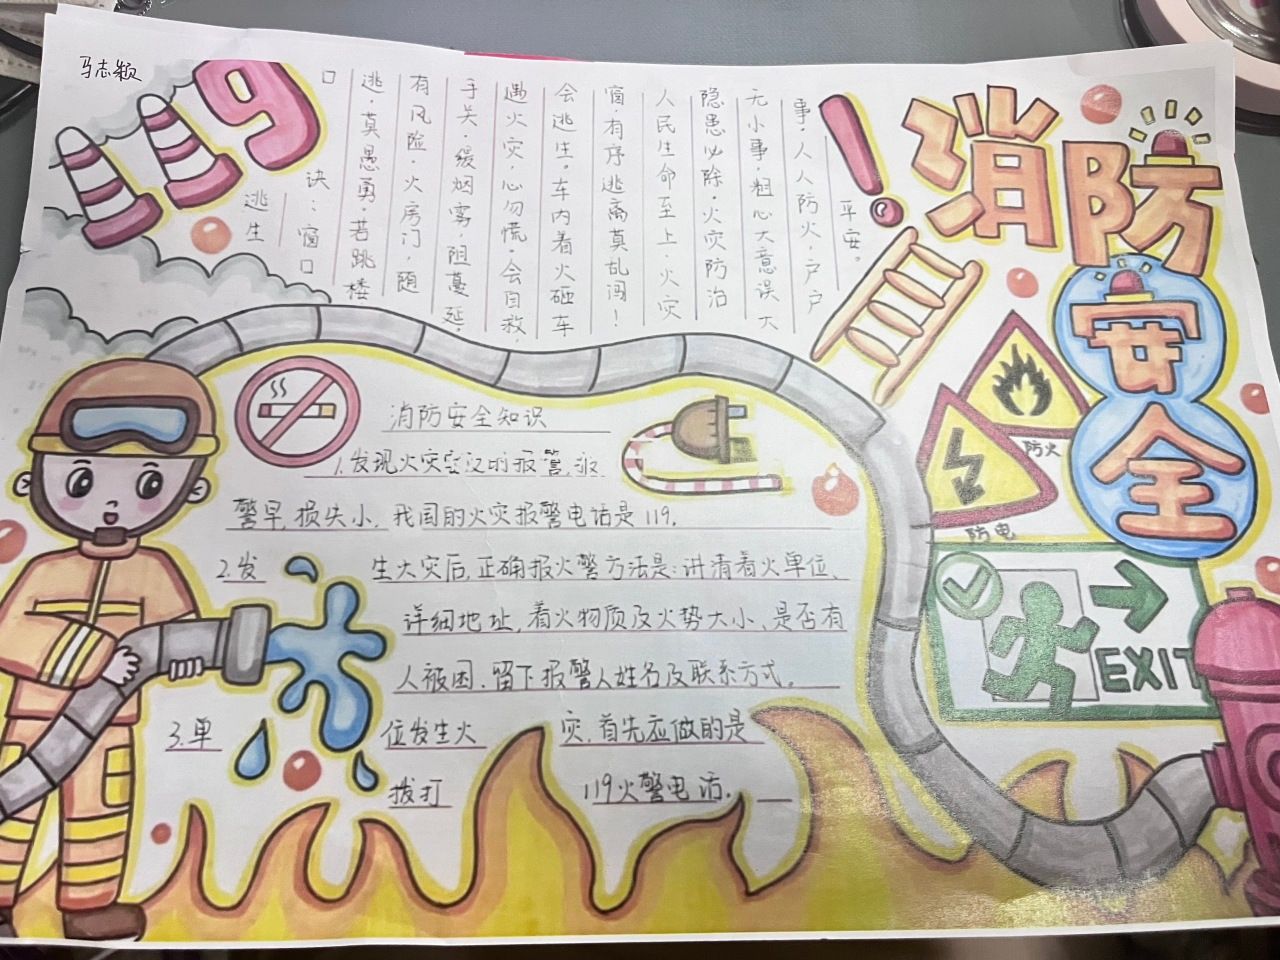 马志颖
119
消防
安
全
逃生
诀：窗口
口
逃，莫愚勇，若跳楼
有风险，火房门，随
手关，缓烟雾，阻蔓延，
遇火灾，心勿慌，会自救，
会逃生。车内着火砸车
窗，有序逃离莫乱闯！
人民生命至上，火灾
隐患必除，火灾防治
无小事，粗心大意误大
事，人人防火，户户
平安。
！
消防安全知识
1.发现火灾 的报警,报
警早,损失小,我国的火灾报警电话是119.
2.发 生火灾后,正确报火警方法是:讲清着火单位、
详细地址,着火物质及火势大小、是否有
人被困,留下报警人姓名及联系方式.
3.单 位发生火 灾,首先应做的是
拨打 119火警电话.
防火
防电
EXIT